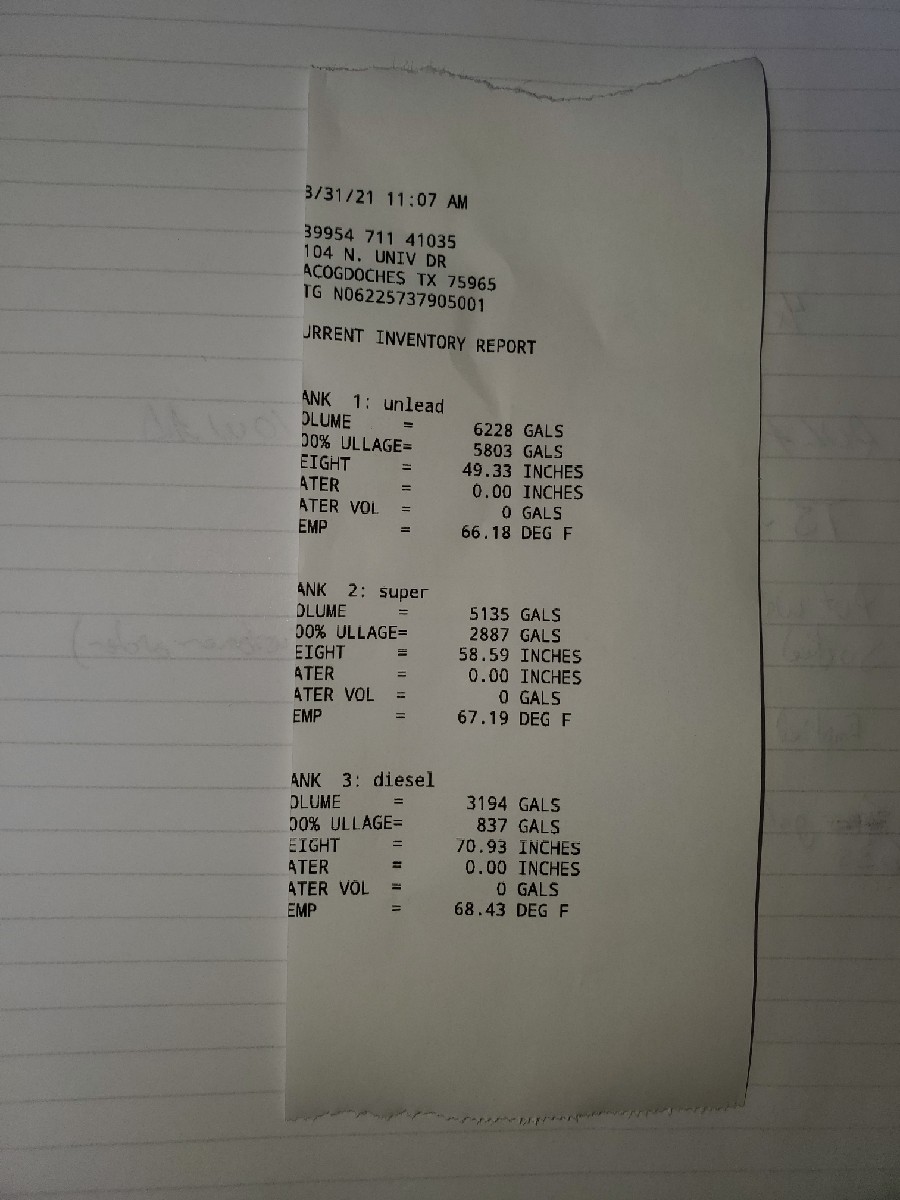 3/31/21 11:07 AM
39954 711 41035
104 N. UNIV DR
ACOGDOCHES TX 75965
TG N06225737905001
URRENT INVENTORY REPORT
ANK 1: unlead
OLUME = 6228 GALS
00% ULLAGE= 5803 GALS
EIGHT = 49.33 INCHES
ATER = 0.00 INCHES
ATER VOL = 0 GALS
EMP = 66.18 DEG F
ANK 2: super
OLUME = 5135 GALS
00% ULLAGE= 2887 GALS
EIGHT = 58.59 INCHES
ATER = 0.00 INCHES
ATER VOL = 0 GALS
EMP = 67.19 DEG F
ANK 3: diesel
OLUME = 3194 GALS
00% ULLAGE= 837 GALS
EIGHT = 70.93 INCHES
ATER = 0.00 INCHES
ATER VOL = 0 GALS
EMP = 68.43 DEG F